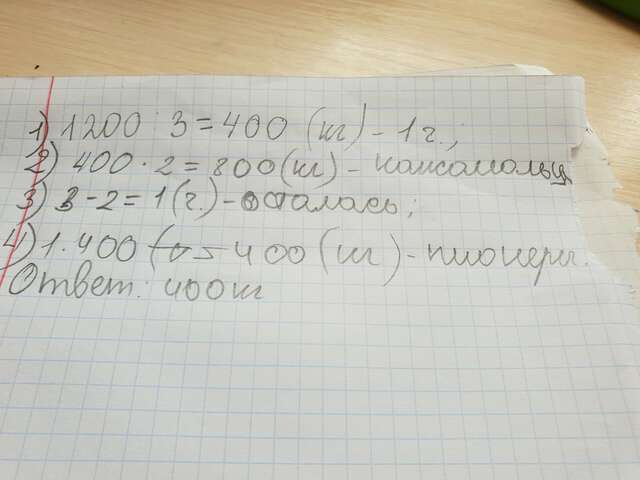 1) 1200 : 3 = 400 (кг) - 1 г.;
2) 400 · 2 = 800 (кг) - комсомольц
3) 3 - 2 = 1 (г.) - осталась;
4) 1 · 400 = 400 (кг) - пионеры.
Ответ: 400 кг